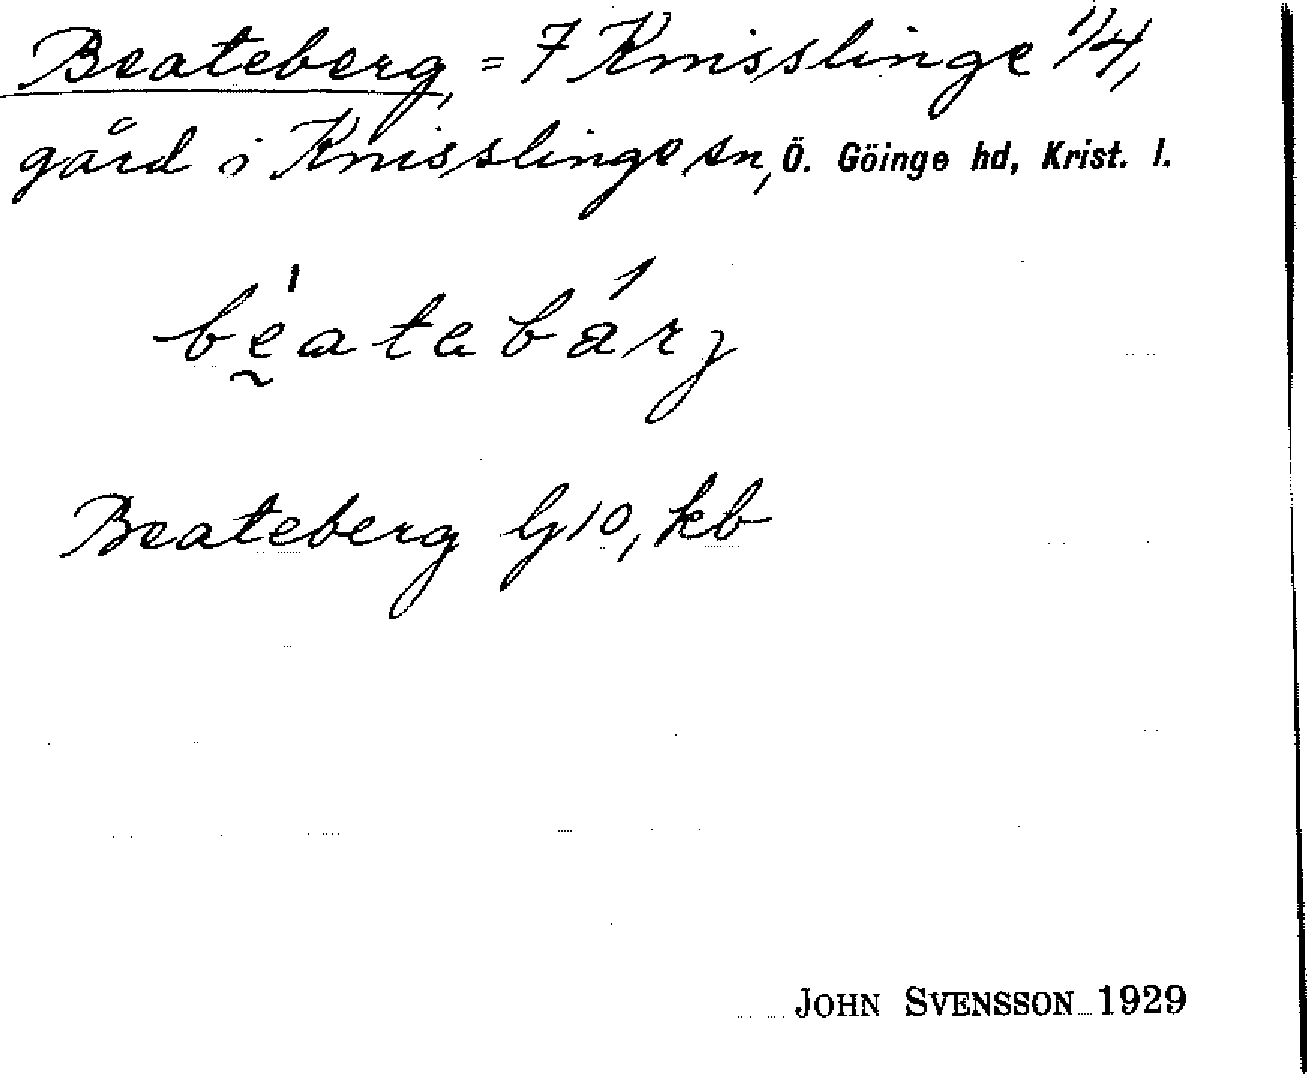 Beateberg, = 7 Knisslinge 1/4,
gård i Knisslinge sn, Ö. Göinge hd, Krist. l.
béatebárj
Beateberg G10, kb
JOHN SVENSSON 1929